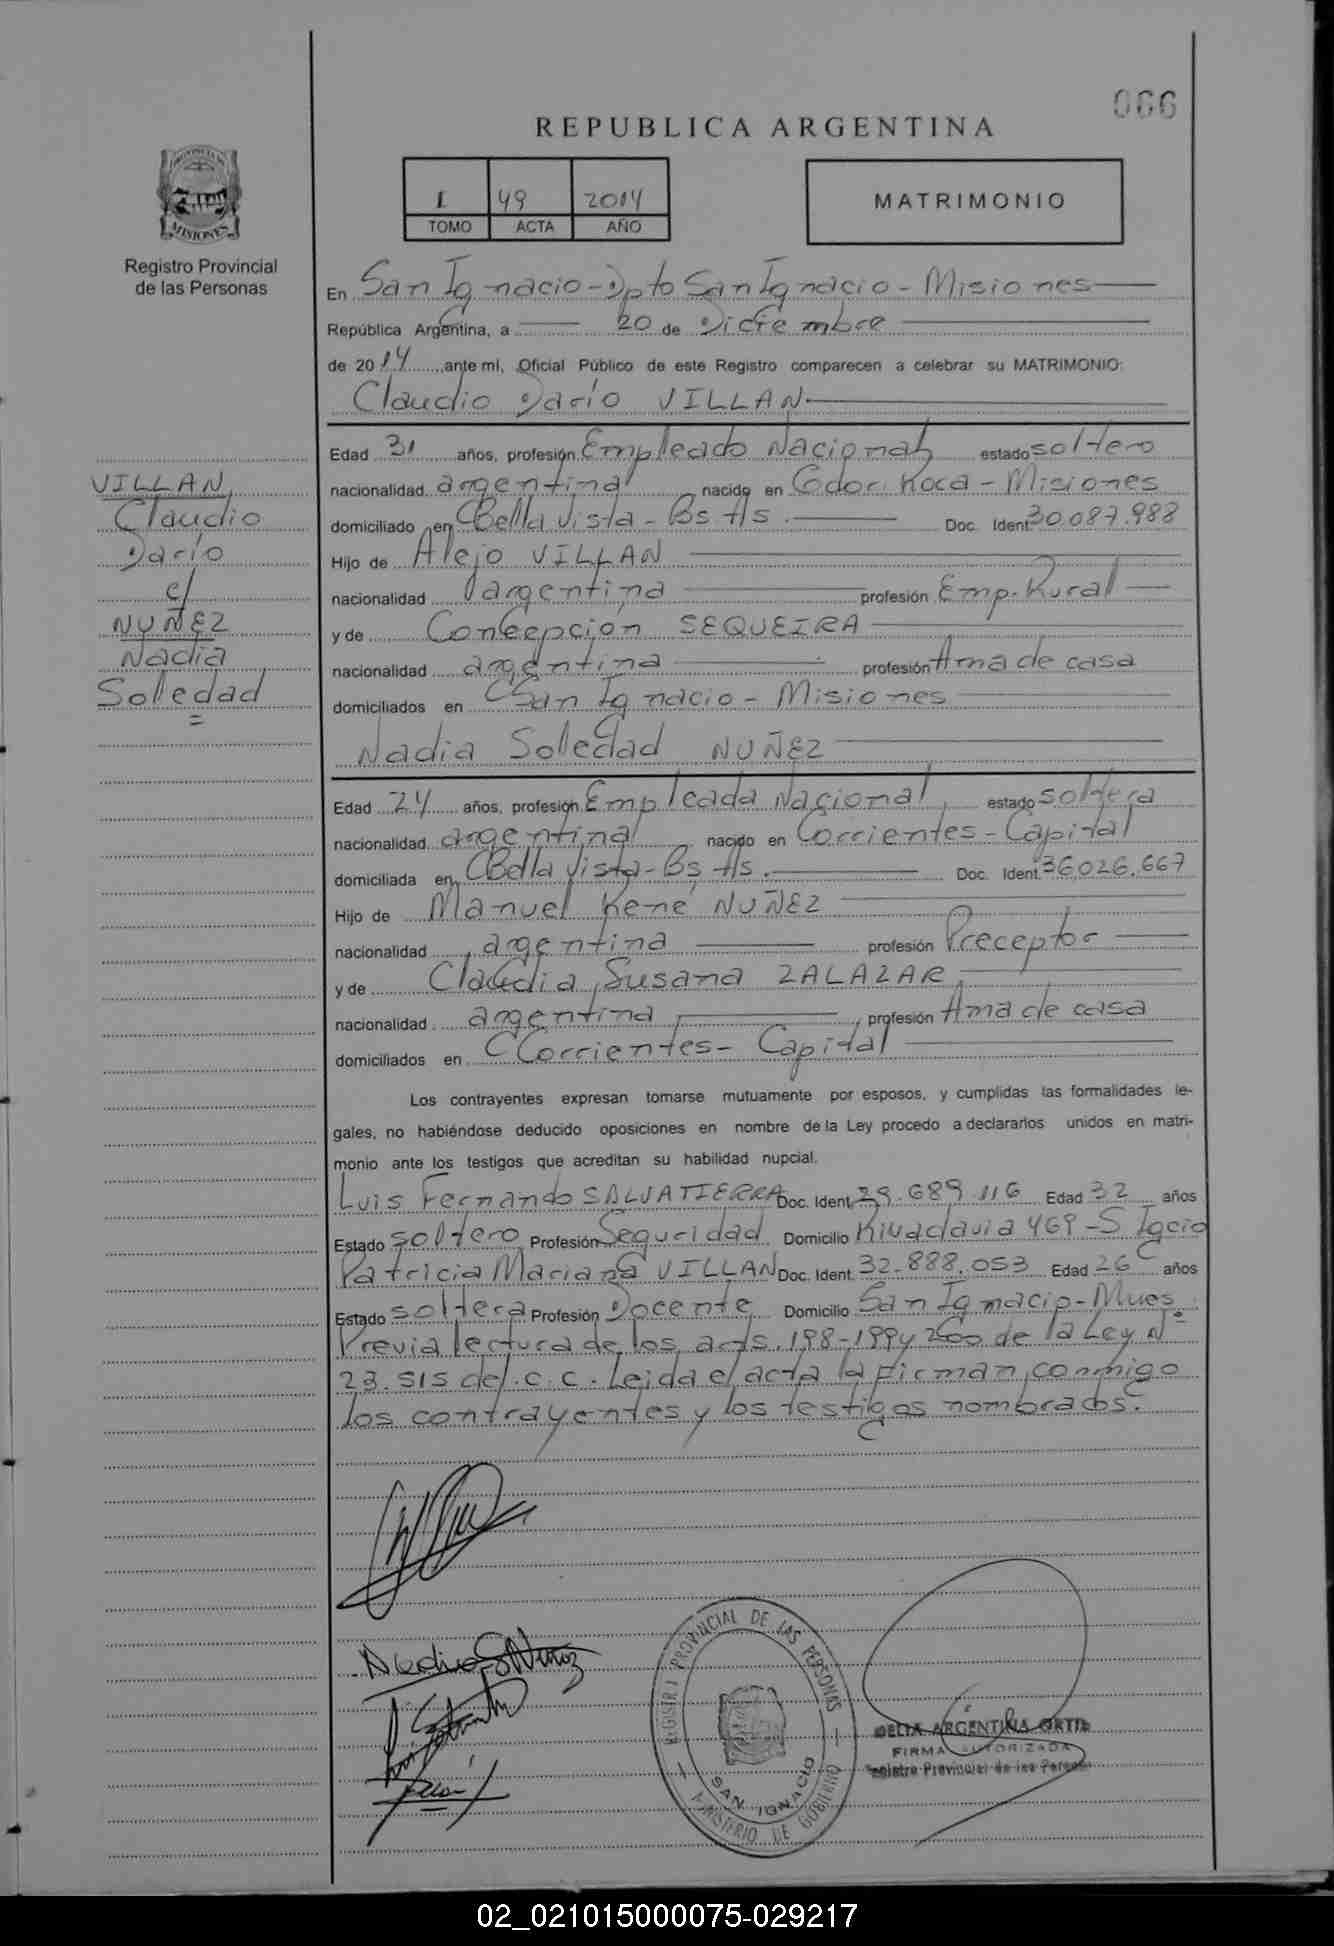 066
REPUBLICA ARGENTINA
I 49 2014
TOMO ACTA AÑO
MATRIMONIO
PROVINCIA DE
MISIONES
Registro Provincial
de las Personas
En San Ignacio - Dpto San Ignacio - Misiones
República Argentina, a 20 de Diciembre
de 2014 ante mí, Oficial Público de este Registro comparecen a celebrar su MATRIMONIO:
Claudio Darío VILLAN
Edad 31 años, profesión Empleado Nacional, estado soltero
nacionalidad argentina, nacido en Gdor. Roca - Misiones
domiciliado en Bella Vista - Bs As. Doc. Ident. 30.087.988
Hijo de Alejo VILLAN
nacionalidad argentina profesión Emp. Rural
y de Concepción SEQUEIRA
nacionalidad argentina profesión Ama de casa
domiciliados en San Ignacio - Misiones
VILLAN,
Claudio
Darío
c/
NUÑEZ
Nadia
Soledad
=
Nadia Soledad NUÑEZ
Edad 24 años, profesión Empleada Nacional, estado soltera
nacionalidad argentina, nacido en Corrientes - Capital
domiciliada en Bella Vista - Bs As. Doc. Ident. 36.026.667
Hijo de Manuel René NUÑEZ
nacionalidad argentina profesión Preceptor
y de Claudia Susana ZALAZAR
nacionalidad argentina, profesión Ama de casa
domiciliados en Corrientes - Capital
Los contrayentes expresan tomarse mutuamente por esposos, y cumplidas las formalidades le-
gales, no habiéndose deducido oposiciones en nombre de la Ley procedo a declararlos unidos en matri-
monio ante los testigos que acreditan su habilidad nupcial.
Luis Fernando SALVATIERRA Doc. Ident. 29.689.116 Edad 32 años
Estado soltero Profesión Seguridad Domicilio Rivadavia 469 - S. Igcio
Patricia Mariana VILLAN Doc. Ident. 32.888.053 Edad 26 años
Estado soltera Profesión Docente Domicilio San Ignacio - Mnes.
Previa lectura de los arts. 198-199 y 200 de la Ley Nº
23.515 del C.C. Leida el acta la firman conmigo
los contrayentes y los testigos nombrados.
Nadia S Nuñez
REGISTRO PROVINCIAL DE LAS PERSONAS
SAN IGNACIO
MINISTERIO DE GOBIERNO
DELIA ARGENTINA ORTIZ
FIRMA AUTORIZADA
Registro Provincial de las Personas
02_021015000075-029217